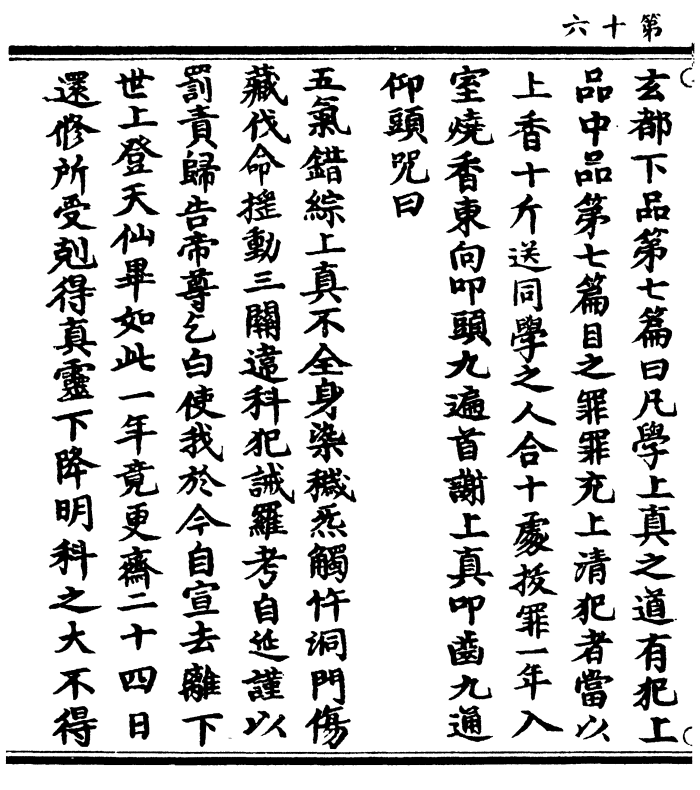 第十六
玄都下品第七篇曰凡學上真之道有犯上
品中品第七篇目之罪罪充上清犯者當以
上香十斤送同學之人合十處投罪一年入
室燒香東向叩頭九遍首謝上真叩齒九通
仰頭咒曰
五氣錯綜上真不全身染穢炁觸忤洞門傷
藏伐命搖動三關違科犯誡羅考自延謹以
罰責歸告帝尊乞白使我於今自宣去離下
世上登天仙畢如此一年竟更齋二十四日
還修所受剋得真靈下降明科之大不得